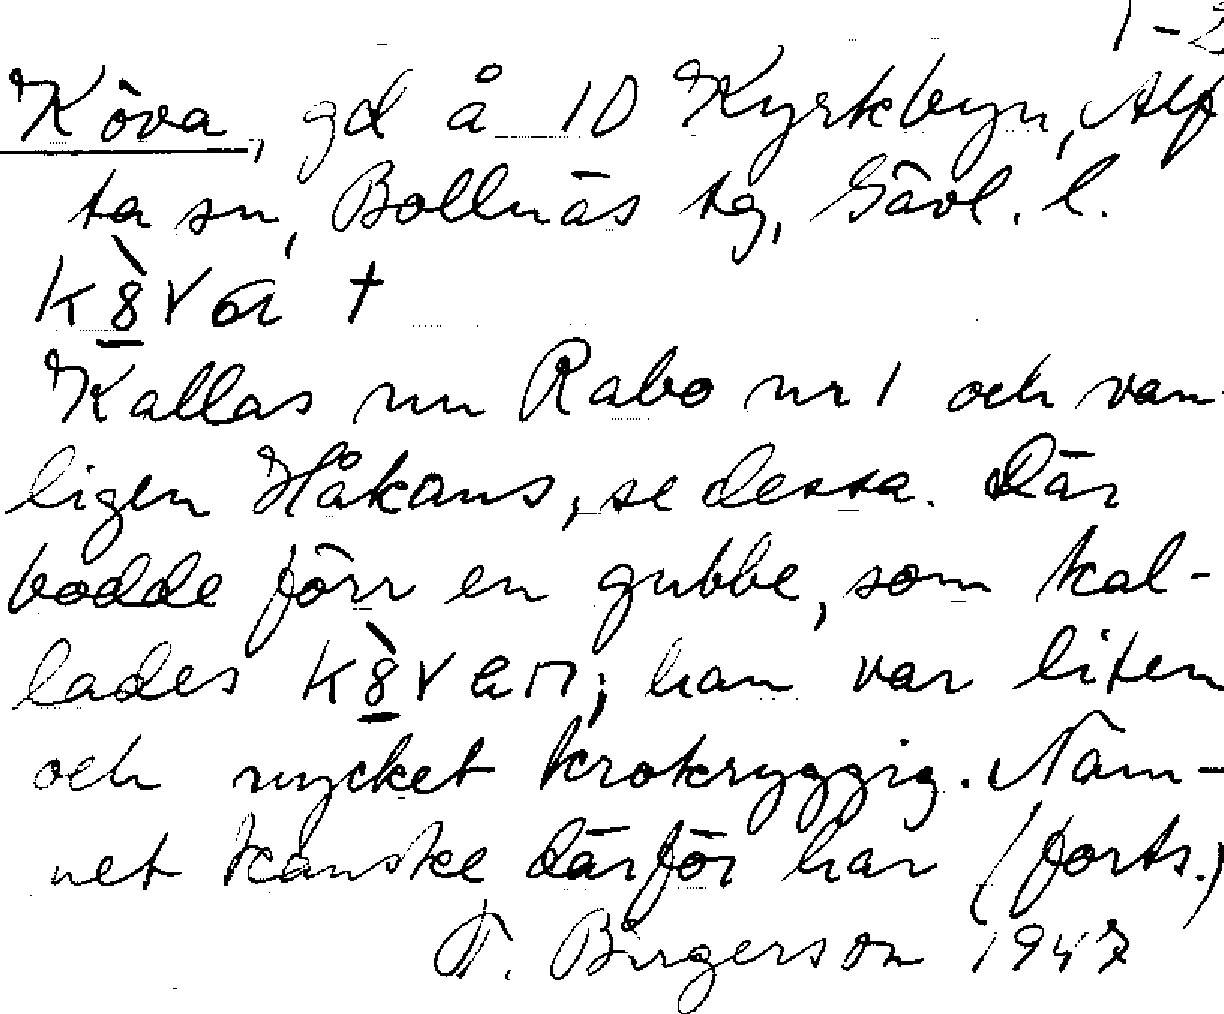 1-2
Köva, gd å 10 Kyrkbyn, Alf
ta sn, Bollnäs tg, Gävl. l.
k8̀va †
Kallas nu Rabo nr 1 och van-
ligen Håkans, se dessa. Där
bodde förr en gubbe, som kal-
lades k8̀van; han var liten
och mycket krokryggig. Nam-
net kanske därför har (forts.)
T. Birgerson 1947